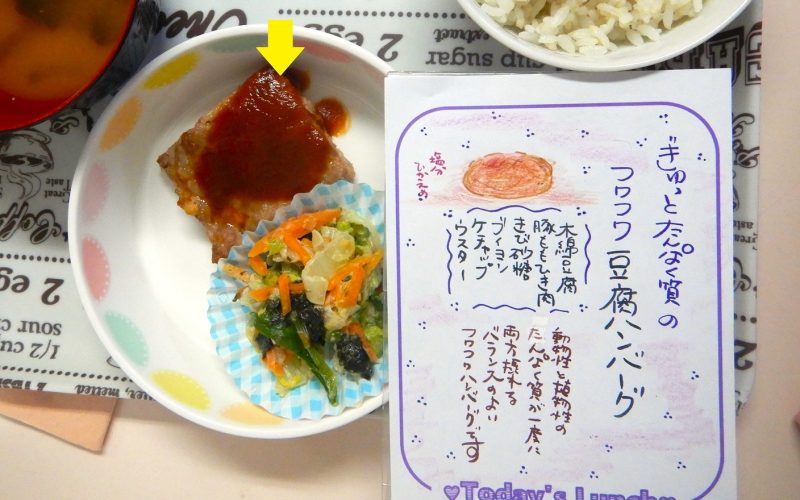 ぎゅっとたんぱく質の
フワフワ豆腐ハンバーグ
塩分
ひかえめ!
木綿豆腐
豚ももひき肉
きび砂糖
ブイヨン
ケチャップ
ウスター
動物性と植物性の
たんぱく質が一度に
両方摂れる
バランスのよい
フワフワハンバーグです
♥Today's Lunch♥
2 egg
sugar
cup su
extract
2 eg
sour cr
1/2 cu